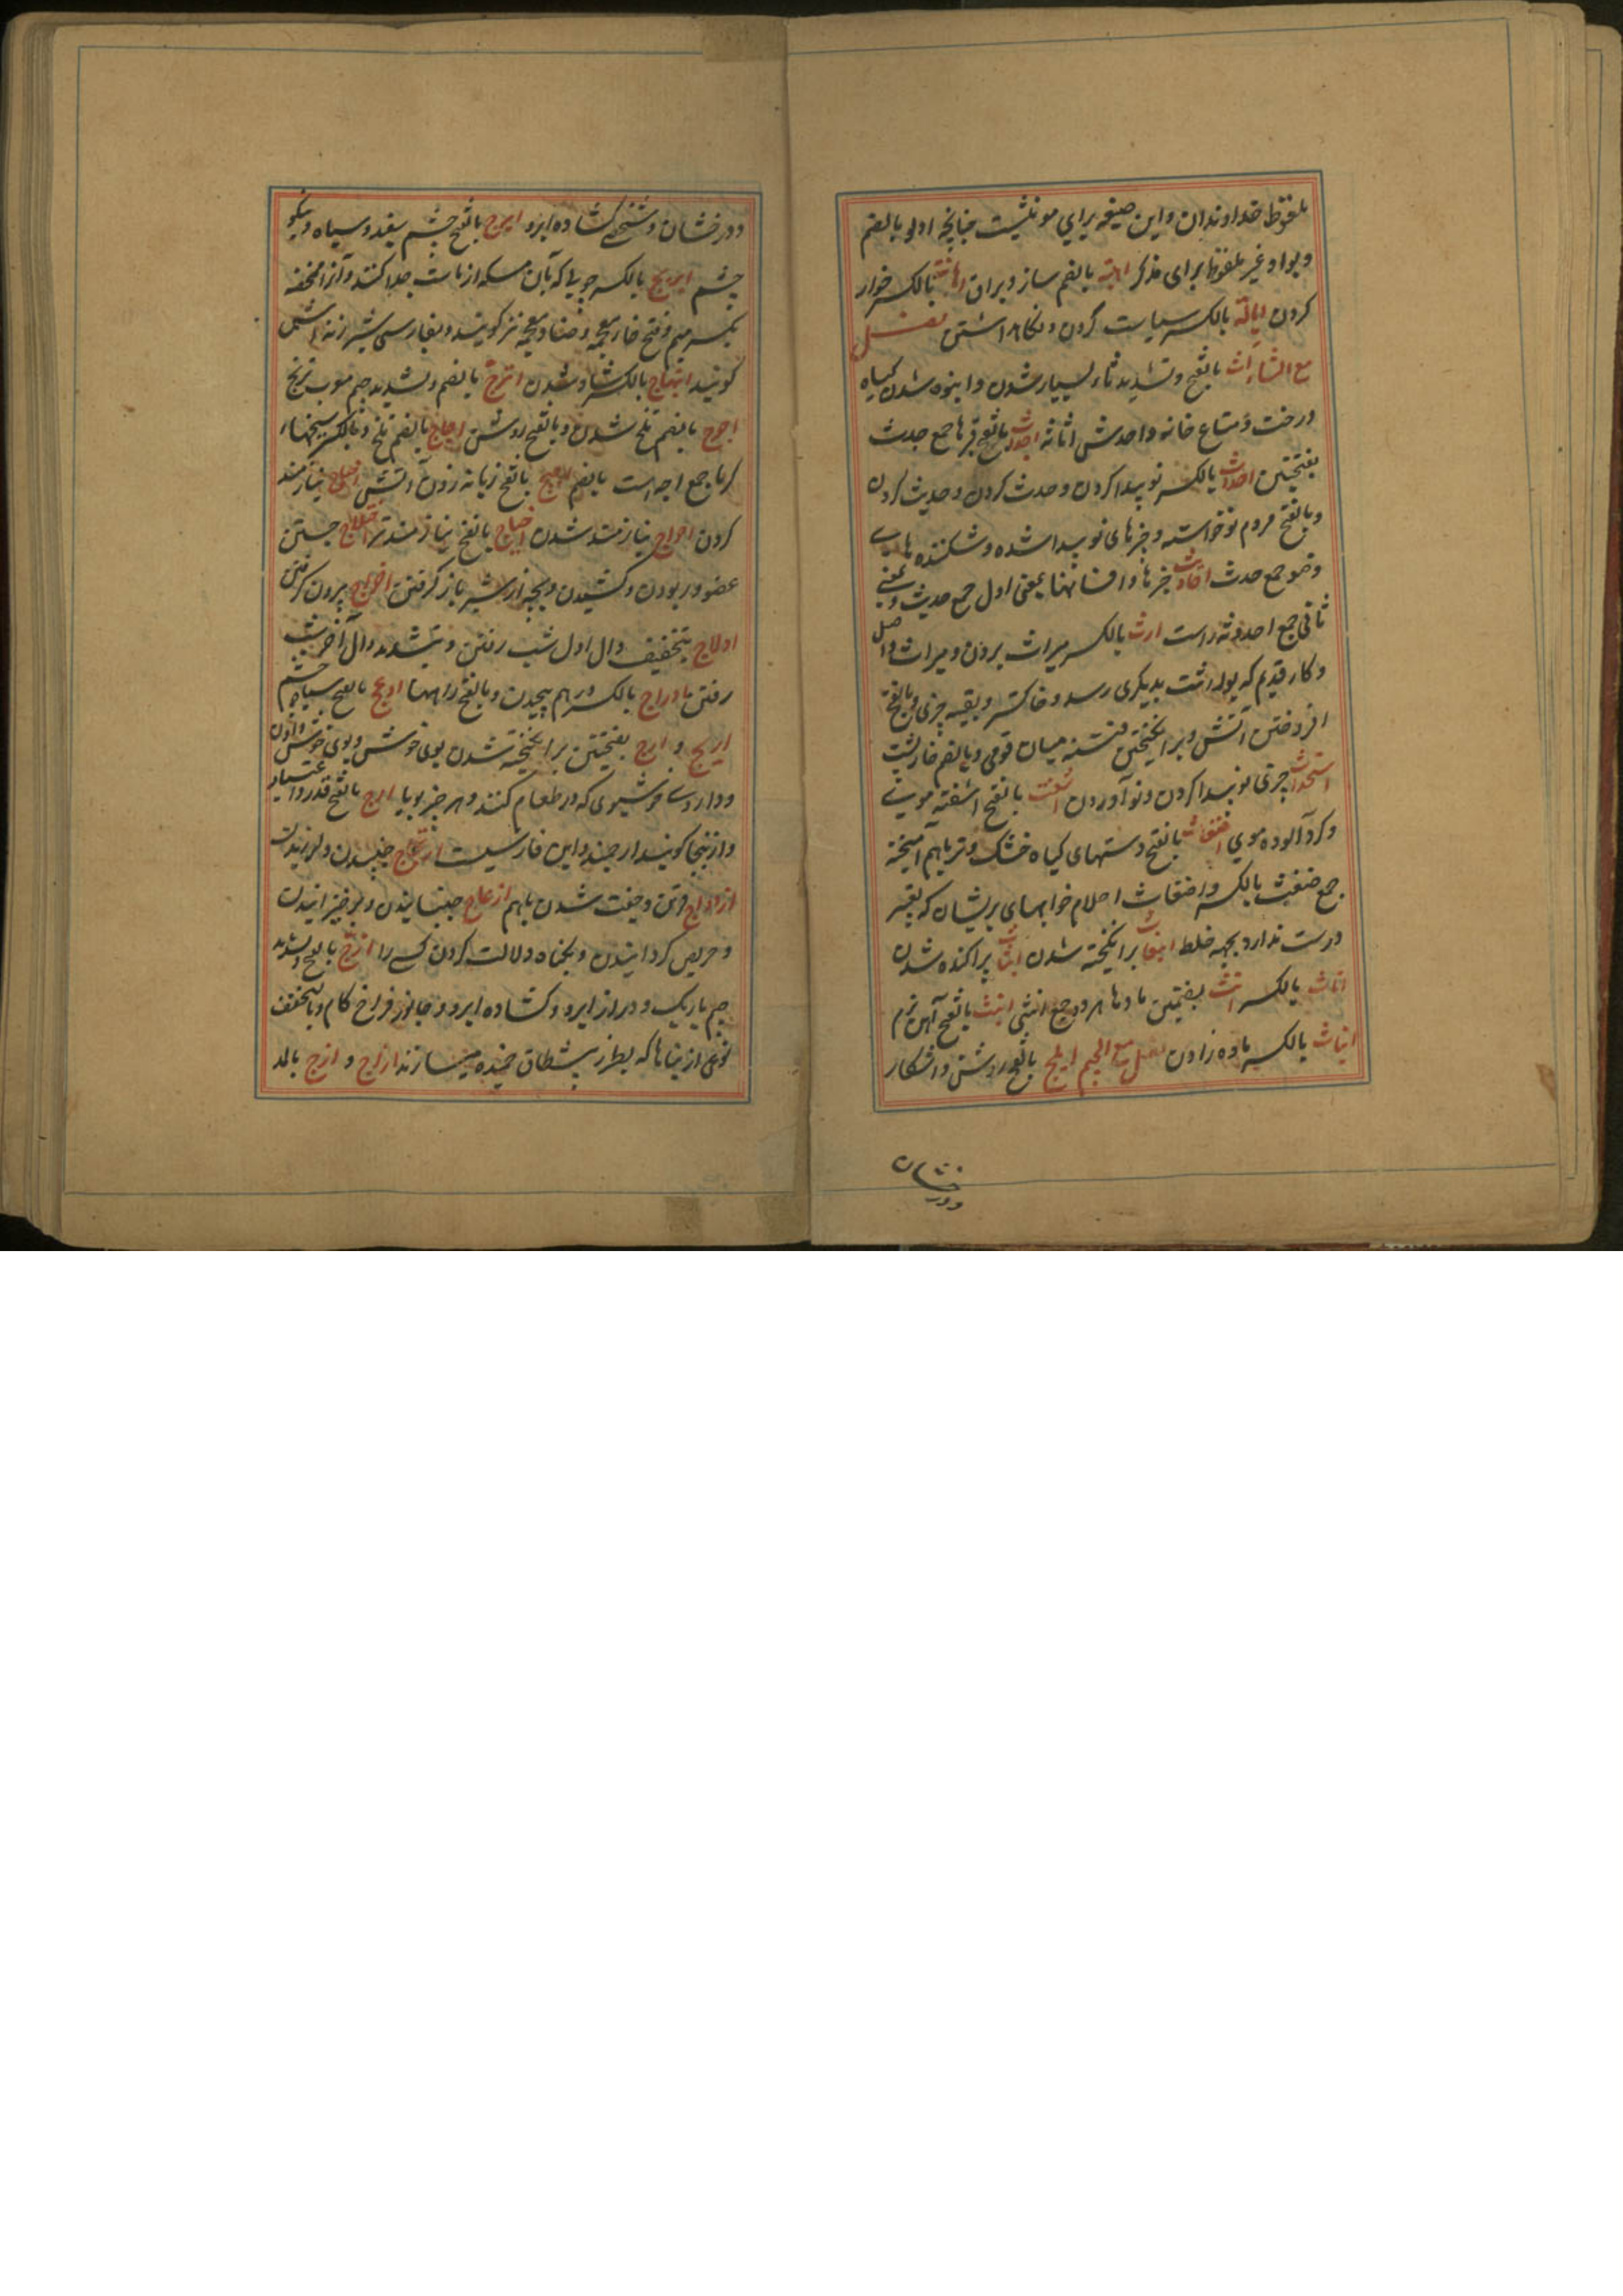 ملفوظ خداوندان و این صیغه برای مونثیست چنانچه اولو بالضم
و بواو غیر ملفوظ برای مذکر اهبة بالضم ساز و یراق اهانت بالکسر خوار
کردن ایالة بالکسر سیاست کردن و نگاه داشتن فصل
مع الثاء اثاث بالفتح و تشدید ثاء بسیار شدن و انبوه شدن گیاه
درخت و متاع خانه واحدش اثاثه اجداث بالفتح قبرها جمع جدث
بفتحتین احداث بالکسر نو پیدا کردن و حدث کردن و حدیث کردن
و بالفتح مردم نوخواسته و چیزهای نو پیدا شده و شکننده های
وضو جمع حدث احادیث خبرها و افسانها بمعنی اول جمع حدیث و بمعنی
ثانی جمع احدوثه است ارث بالکسر میراث بردن و میراث و اصل
و کار قدیم که بوراثت بدیگری رسد و خاکستر و بقیه چیزی و بالفتح
افروختن آتش و برانگیختن فتنه میان قومی و بالضم خارپشت
استحداث چیزی نو پیدا کردن و نو آوردن اشعث بالفتح آشفته موی
و کرد آلوده موی اضغاث بالفتح دستهای کیاه خشک و تر باهم آمیخته
جمع ضغث بالکسر و اضغاث احلام خوابهای پریشان که تعبیر
درست ندارد بجهه خلط انبعاث برانکیخته شدن انبثاث پراکنده شدن
اناث بالکسر انث بضمتین مادها هر دو جمع انثی انیث بالفتح آهن نرم
ایناث بالکسر ماده زادن فصل مع الجیم ابلج بالفتح روشن و آشکار
ودرخشان
ودرخشان و شخصی کشاده ابرو ابرج بالفتح چشم سفید و سیاه و نیکو
چشم ابریج بالکسر چوبی که بآن مسکه از ماست جدا کنند و آنرا ممخضه
بکسر میم و فتح خاء معجمه و ضاد معجمه نیز کویند و بفارسی شیر زنه اش
کویند ابتهاج بالکسر شاد شدن اترج بالضم و تشدید جیم معرب ترنج
اجوج بالضم تلخ شدن و بالفتح روشن اجاج بالضم تلخ و بالکسر سیخها
کرما جمع اجه است بالضم اجیج بالفتح زبانه زدن آتش احتیاج نیازمند
کردن احواج نیازمند شدن احوج بالفتح نیازمندتر اختلاج جستن
عضو و ربودن و کشیدن و بچه از شیر باز کرفتن اخراج بیرون کردن
ادلاج بتخفیف دال اول شب رفتن و بتشدید دال آخر شب
رفتن ادراج بالکسر درهم پیچیدن و بالفتح راهها ادعج بالفتح سیاه چشم
اریج و ارج بفتحتین برانگیخته شدن بوی خوش و بوی خوش دادن
و داروی خوشبوی که در طعام کنند و هر چیز بویا ارج بالفتح قدر و اعتبار
و ازینجا کویند ارجمند و این فارسیست ارتجاج جنبیدن و لرزیدن
ازدواج قرین و جفت شدن باهم ازعاج جنبانیدن و برخیزانیدن
و حریص کردانیدن و بکناه دلالت کردن کسی را ازج بالفتح و تشدید
جیم باریک و دراز ابرو و کشاده ابرو و جانور فراخ کام و بالتخفیف
نوعی از بناها که بطرز پیشطاق خمیده میسازند ازاج و ازج بالمد